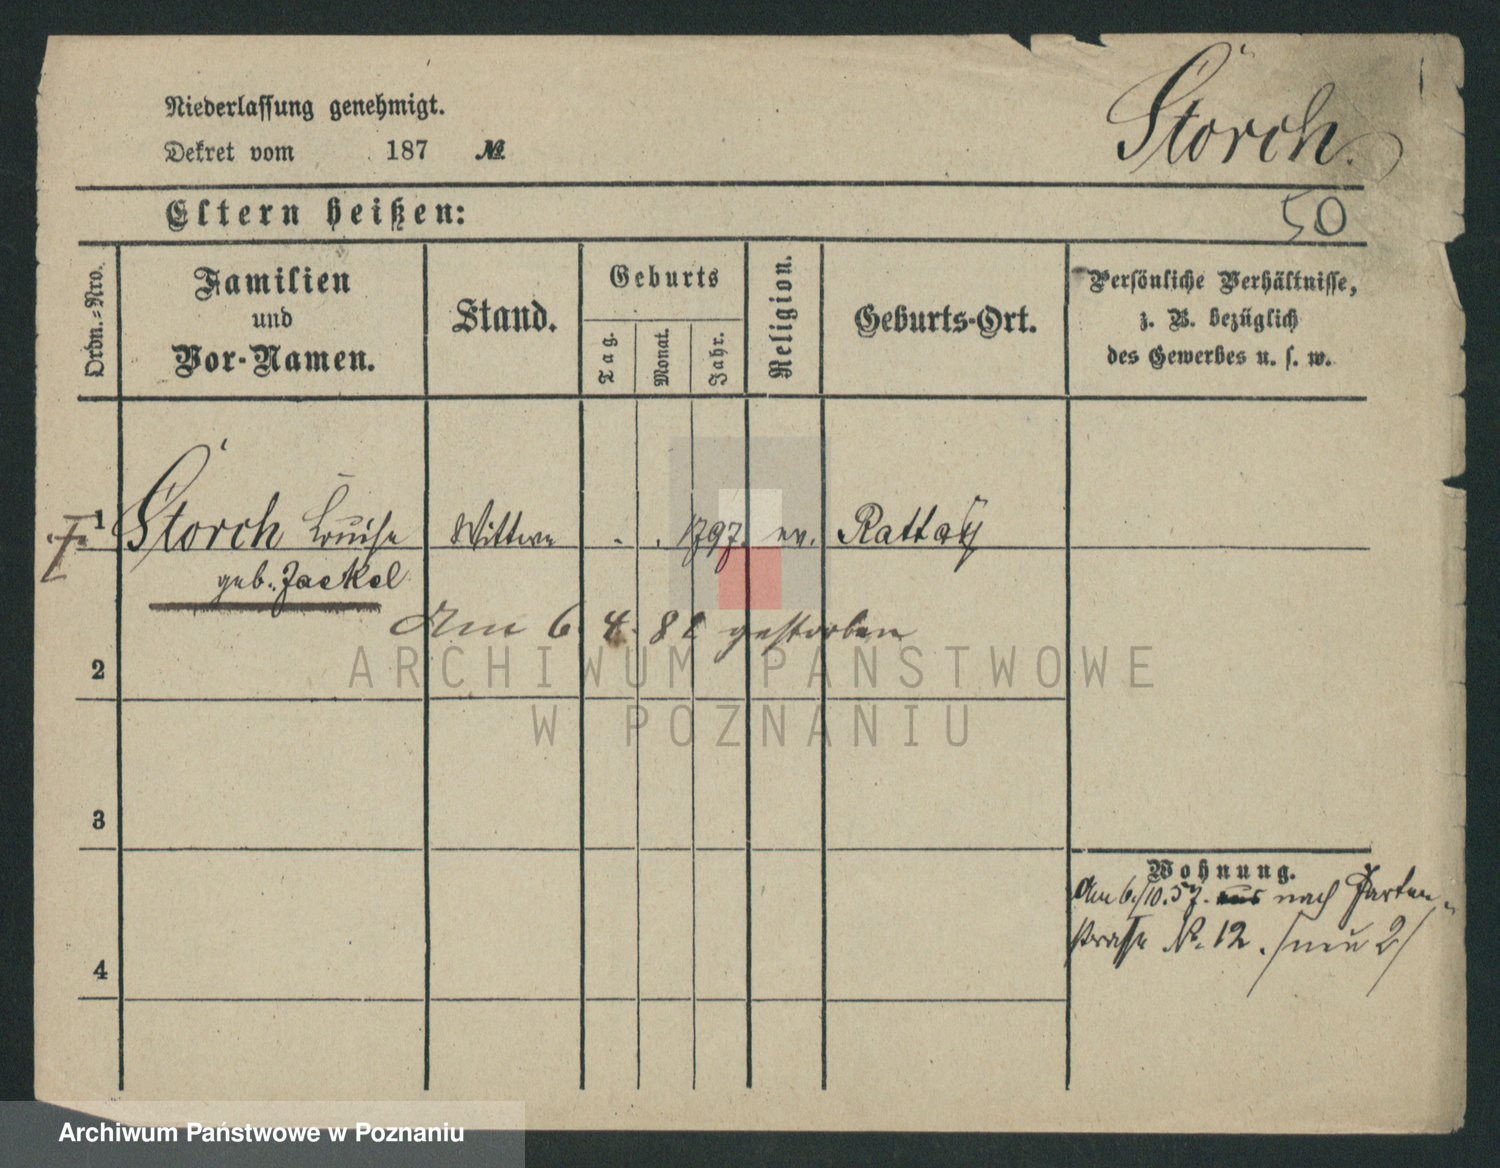 Niederlassung genehmigt.
Storch.
Dekret vom 187 №
Eltern heißen:
50
Ordn.-Nro.
Familien und Vor-Namen.
Stand.
Geburts
Tag.
Monat.
Jahr.
Religion.
Geburts-Ort.
Persönliche Verhältnisse,
z. B. bezüglich
des Gewerbes u. s. w.
1 Storch Louise Wittwe . . 1797. ev. Rattay
geb. Jaekel
Am 6 4. 82 gestorben
2
3
4
Wohnung.
Am 6./10.57. aus nach Garten-
straße No. 12. /neu 2/
ARCHIWUM PAŃSTWOWE
W POZNANIU
Archiwum Państwowe w Poznaniu